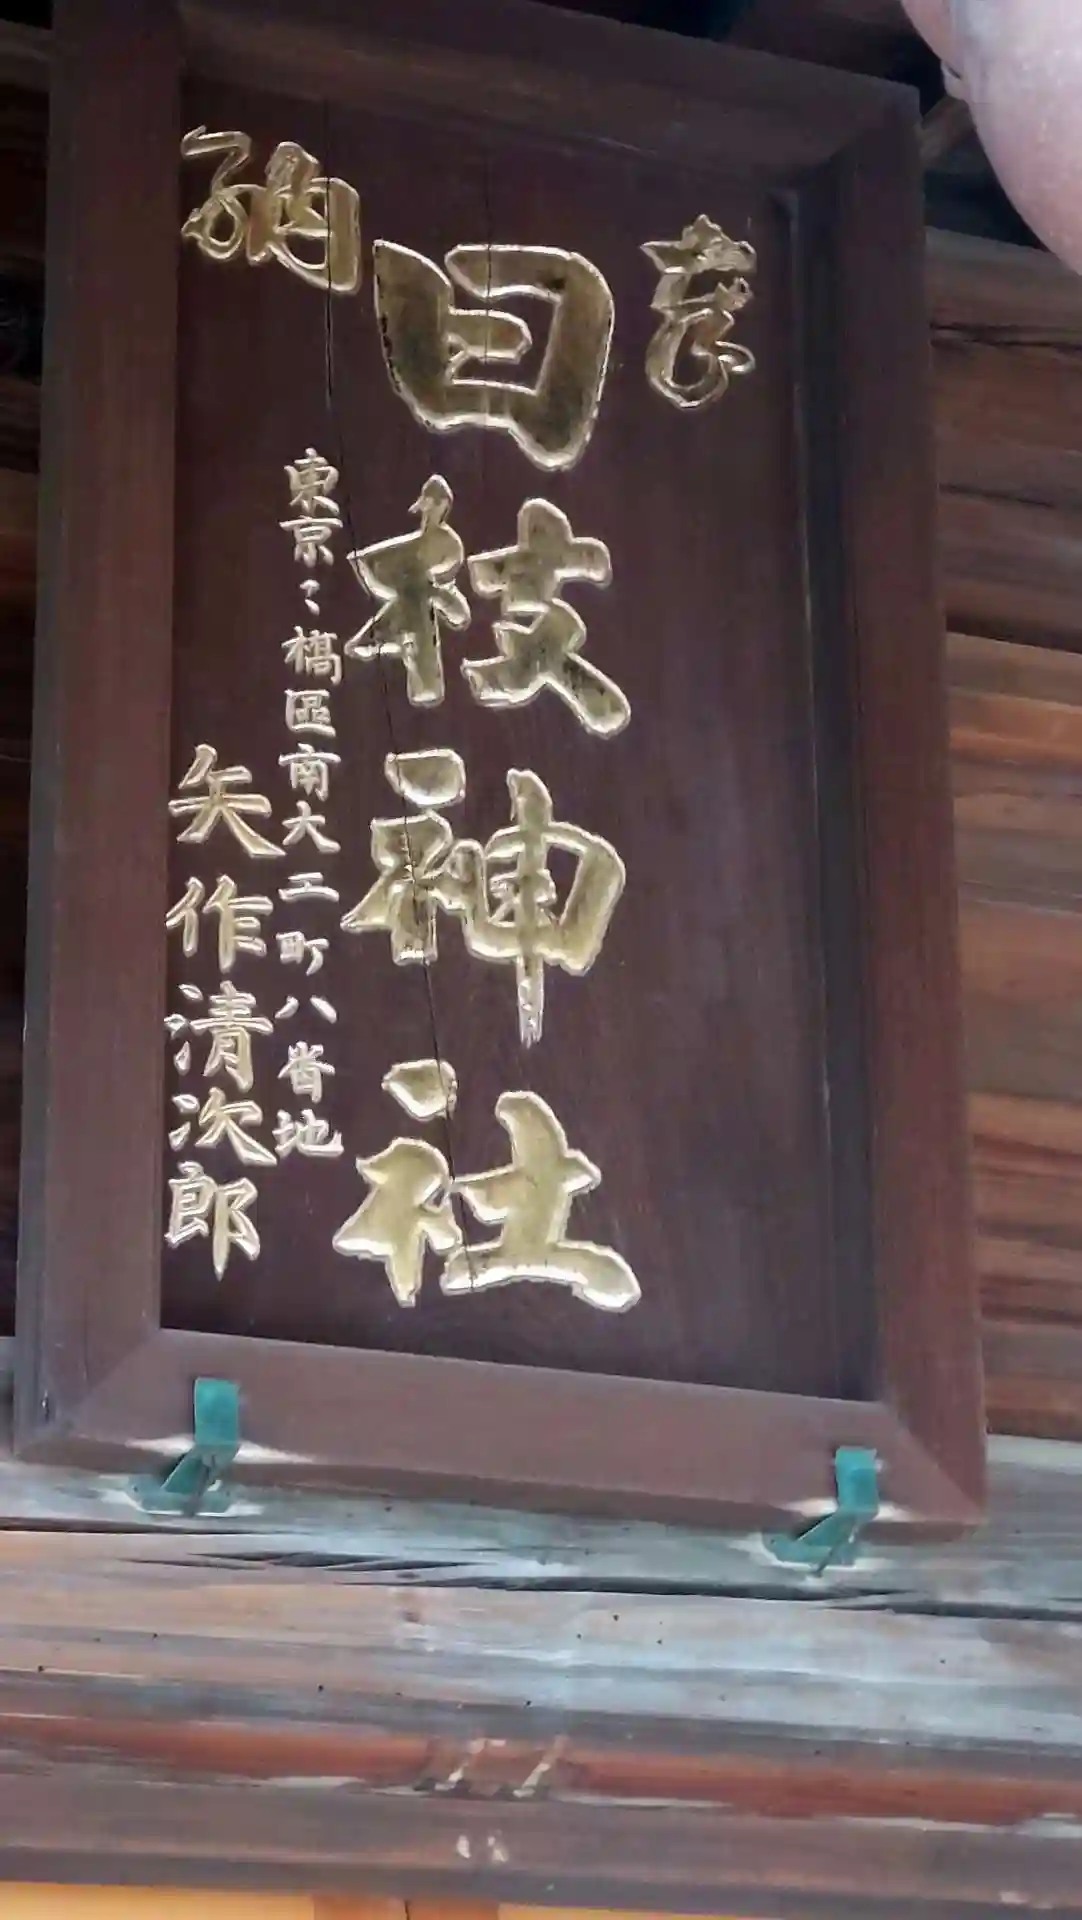 奉
日枝神社
納
東京〻橋區南大工町八番地
矢作清次郎